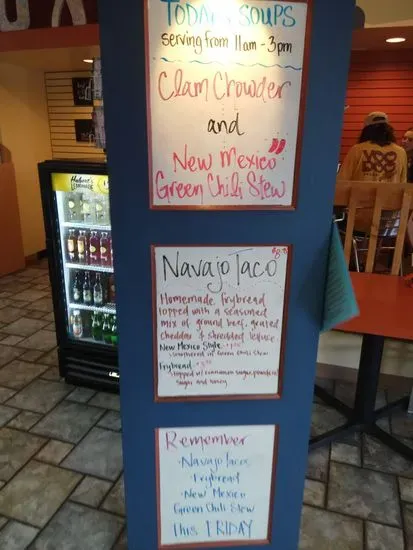 Today's Soups
serving from 11am - 3pm
Clam Chowder
and
New Mexico
Green Chili Stew
Navajo Taco
Homemade frybread
topped with a seasoned
mix of ground beef, grated
cheddar & shredded lettuce.
New Mexico Style
smothered in Green Chili Stew
Frybread
topped w/ cinnamon sugar, powdered
sugar and honey
Remember
-Navajo Tacos
-Frybread
-New Mexico
Green Chili Stew
This FRIDAY
Hubert's
LEMONADE